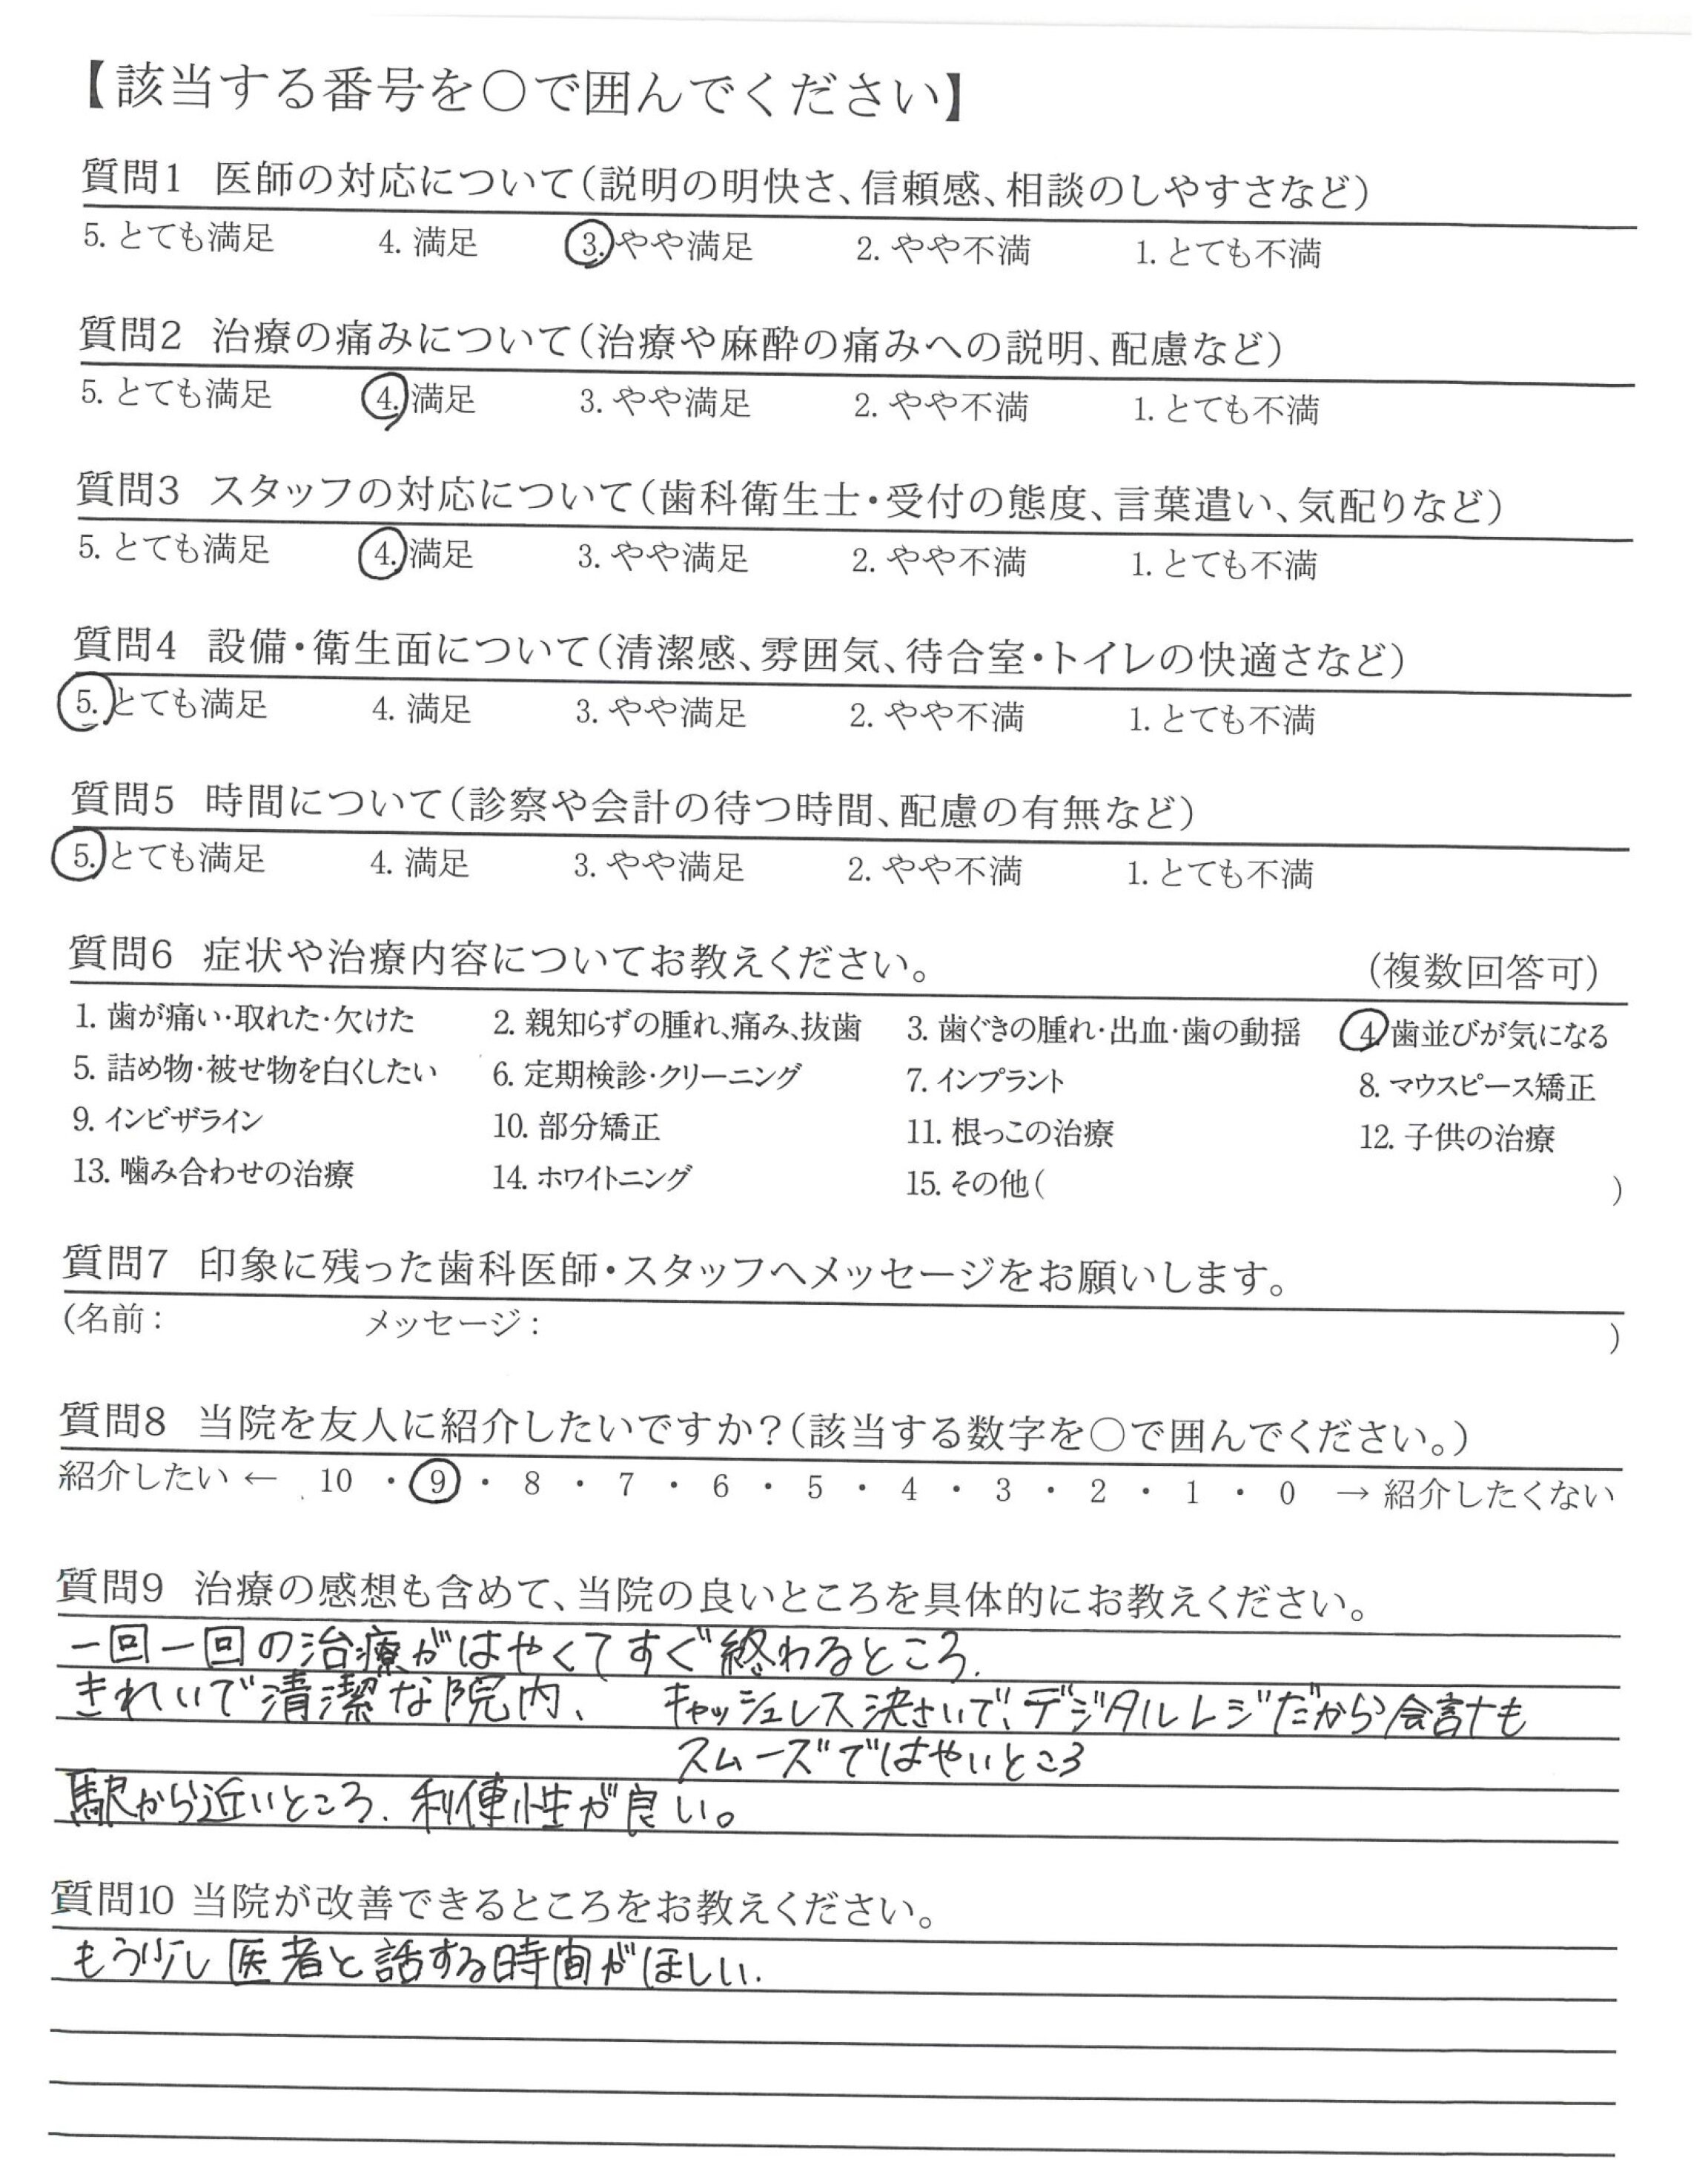 【該当する番号を○で囲んでください】
質問1 医師の対応について(説明の明快さ、信頼感、相談のしやすさなど)
5. とても満足 4. 満足 3. やや満足 2. やや不満 1. とても不満
質問2 治療の痛みについて(治療や麻酔の痛みへの説明、配慮など)
5. とても満足 4. 満足 3. やや満足 2. やや不満 1. とても不満
質問3 スタッフの対応について(歯科衛生士・受付の態度、言葉遣い、気配りなど)
5. とても満足 4. 満足 3. やや満足 2. やや不満 1. とても不満
質問4 設備・衛生面について(清潔感、雰囲気、待合室・トイレの快適さなど)
5. とても満足 4. 満足 3. やや満足 2. やや不満 1. とても不満
質問5 時間について(診察や会計の待つ時間、配慮の有無など)
5. とても満足 4. 満足 3. やや満足 2. やや不満 1. とても不満
質問6 症状や治療内容についてお教えください。 (複数回答可)
1. 歯が痛い・取れた・欠けた 2. 親知らずの腫れ、痛み、抜歯 3. 歯ぐきの腫れ・出血・歯の動揺 4. 歯並びが気になる
5. 詰め物・被せ物を白くしたい 6. 定期検診・クリーニング 7. インプラント 8. マウスピース矯正
9. インビザライン 10. 部分矯正 11. 根っこの治療 12. 子供の治療
13. 噛み合わせの治療 14. ホワイトニング 15. その他( )
質問7 印象に残った歯科医師・スタッフへメッセージをお願いします。
(名前: メッセージ: )
質問8 当院を友人に紹介したいですか?(該当する数字を○で囲んでください。)
紹介したい ← 10 ・ 9 ・ 8 ・ 7 ・ 6 ・ 5 ・ 4 ・ 3 ・ 2 ・ 1 ・ 0 → 紹介したくない
質問9 治療の感想も含めて、当院の良いところを具体的にお教えください。
一回一回の治療がはやくてすぐ終わるところ.
きれいで清潔な院内、 キャッシュレス決さいで、デジタルレジだから会計も
スムーズではやいところ
駅から近いところ. 利便性が良い。
質問10 当院が改善できるところをお教えください。
もう少し医者と話する時間がほしい.